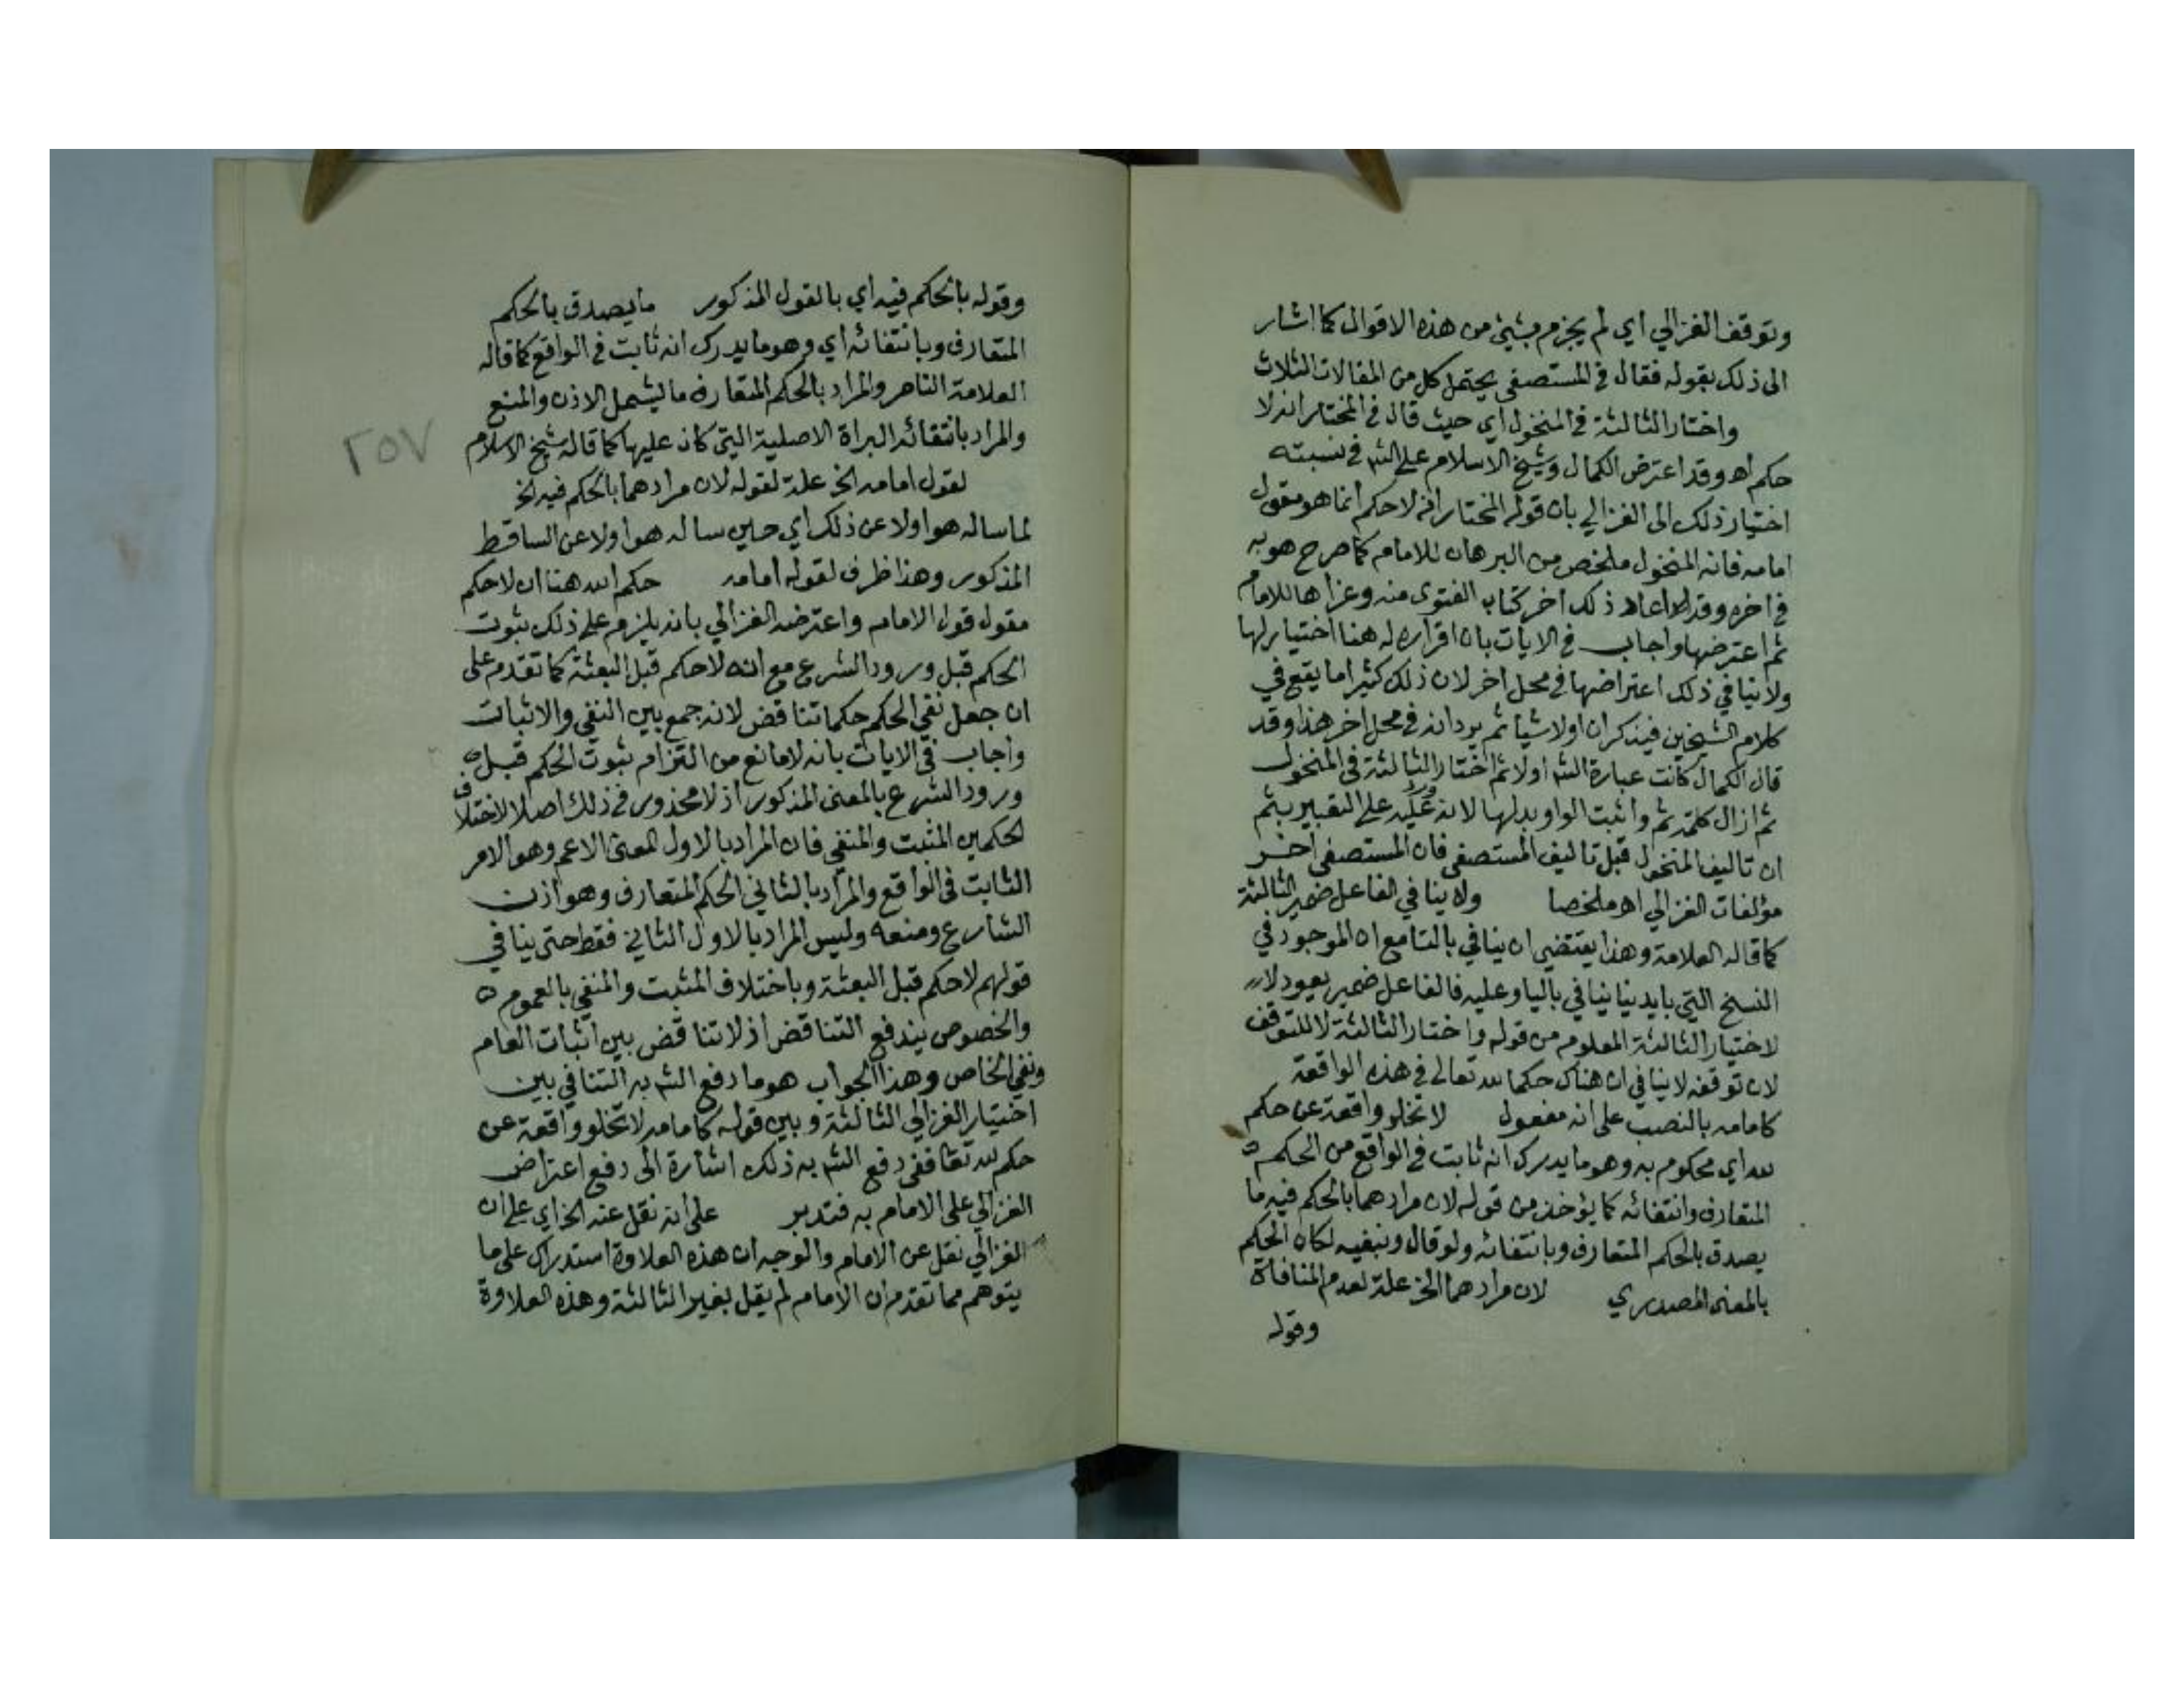 وتوقف الغزالي اي لم يجزم بشيئ من هذه الاقوال كما اشار
الى ذلك بقوله فقال في المستصفى يحتمل كل من المقالات الثلاث
واختار الثالثة في المنخول اي حيث قال في المختار انه لا
حكم اهـ وقد اعترض الكمال وشيخ الاسلام على الش في نسبته
اختيار ذلك الى الغزالي بان قوله المختار انه لا حكم انما هو مقول
امامه فانه المنخول ملخص من البرهان للامام كما صرح هو به
في اخره وقد اعاد ذلك اخر كتاب الفتوى منه وعزاها للامام
ثم اعترضها واجاب في الايات بان اقراره له هنا اختيار لها
ولا ينافي ذلك اعتراضها في محل اخر لان ذلك كثيرا ما يقع في
كلام الشيخين فيذكران اولا شيا ثم يردانه في محل اخر هذا وقد
قال الكمال كانت عبارة الش اولا ثم اختار الثالثة في المنخول
ثم ازال كلمة ثم واثبت الواو بدلها لانه ورد عليه على التعبير بثم
ان تاليف المنخول قبل تاليف المستصفى فان المستصفى اخر
مؤلفات الغزالي اهـ ملخصا ولا ينافي الفاعل ضمير الثالثة
كما قاله العلامة وهذا يقتضي ان ينافي بالتا مع ان الموجود في
النسخ التي بايدينا ينافي باليا وعليه فالفاعل ضمير يعود
لاختيار الثالثة المعلوم من قوله واختار الثالثة لا للتوقف
لان توقفه لا ينافي ان هناك حكما لله تعالى في هذه الواقعة
كامامه بالنصب على انه مفعول لا تخلو واقعة عن حكم
لله اي محكوم به وهو ما يدرك انه ثابت في الواقع من الحكم
المتعارف وانتفائه كما يؤخذ من قوله لان مرادهما بالحكم فيه ما
يصدق بالحكم المتعارف وبانتفائه ولو قال ونفيه لكان الحكم
بالمعنى المصدري لان مرادهما الخ علة لعدم المنافاة
وقوله
وقوله بالحكم فيه اي بالقول المذكور ما يصدق بالحكم
المتعارف وبانتفائه اي وهو ما يدرك انه ثابت في الواقع كما قاله
العلامة الناصر والمراد بالحكم المتعارف ما يشمل الاذن والمنع
والمراد بانتفائه البراة الاصلية التي كان عليها كما قاله شيخ الاسلام
٢٥٧
لقول امامه الخ علة لقوله لان مرادهما بالحكم فيه الخ
لما ساله هو اولا عن ذلك اي حين ساله هو اولا عن الساقط
المذكور وهذا ظرف لقوله امامه حكم الله هنا ان لا حكم
مقول قول الامام واعترضه الغزالي بانه يلزم على ذلك ثبوت
الحكم قبل ورود الشرع مع انه لا حكم قبل البعثة كما تقدم على
ان جعل نفي الحكم حكما تناقض لانه جمع بين النفي والاثبات
واجاب في الايات بانه لا مانع من التزام ثبوت الحكم قبل
ورود الشرع بالمعنى المذكور اذ لا محذور في ذلك اصلا لاختلاف
الحكمين المثبت والمنفي فان المراد بالاول المعنى الاعم وهو الامر
الثابت في الواقع والمراد بالثاني الحكم المتعارف وهو اذن
الشارع ومنعه وليس المراد بالاول الثاني فقط حتى ينافي
قولهم لا حكم قبل البعثة وباختلاف المثبت والمنفي بالعموم
والخصوص يندفع التناقض اذ لا تناقض بين اثبات العام
ونفي الخاص وهذا الجواب هو ما دفع الش به التنافي بين
اختيار الغزالي الثالثة وبين قوله كامامه لا تخلو واقعة عن
حكم لله تعا ففي دفع الش به ذلك اشارة الى دفع اعتراض
الغزالي على الامام به فتدبر على انه نقل عنه الخ اي على ان
الغزالي نقل عن الامام والوجه ان هذه العلاوة استدراك على ما
يتوهم مما تقدم ان الامام لم يقل بغير الثالثة وهذه العلاوة